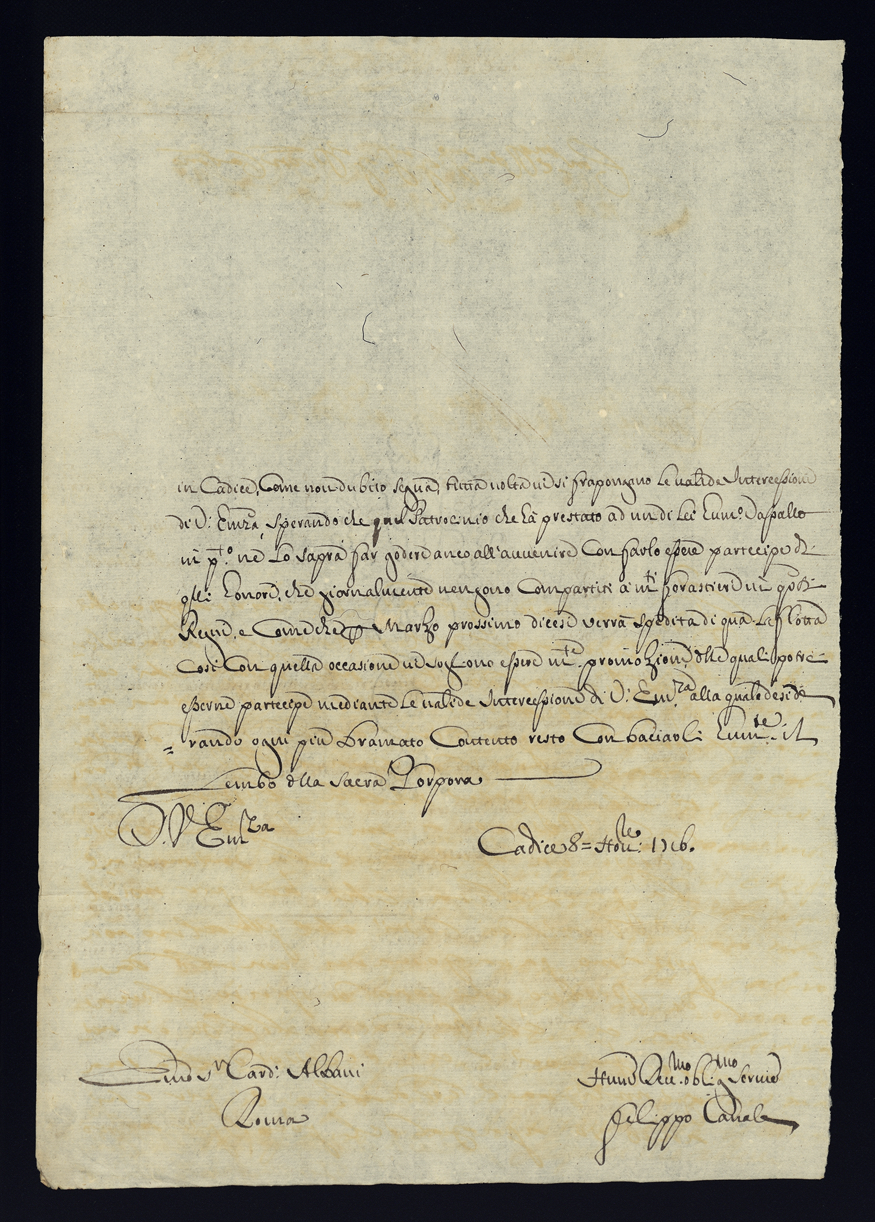 in Cadice, Come non dubito segua, tutta uolta ue si frapongino le ualide Intercessioni
di V: Emza, sperando che quel Patrocinio che hà prestato ad un di Lei Humo: Vasallo
in pto: ne lo saprà far godere anco all'auuenire con farlo essere partecipe di
quei honori, che giornalmente uengono compartiti à mti forastieri in questi
Regni, e come che Marzo prossimo dicesi verrà spedita di qua La flotta
Così con quella occasione ue sogliono essere mte. promozioni delle quali potrei
esserne partecipe mediante le ualide Intercessioni di V: Emza. alla quale deside
= rando ogni più bramato Contento resto con baciarli Humte. il
Lembo della Sacra Porpora
D. V Emza
Cadice 8= 1716.
Emo Sr Card: Albani
Roma
Humo Deumo. obligmo Serure
Filippo Canale